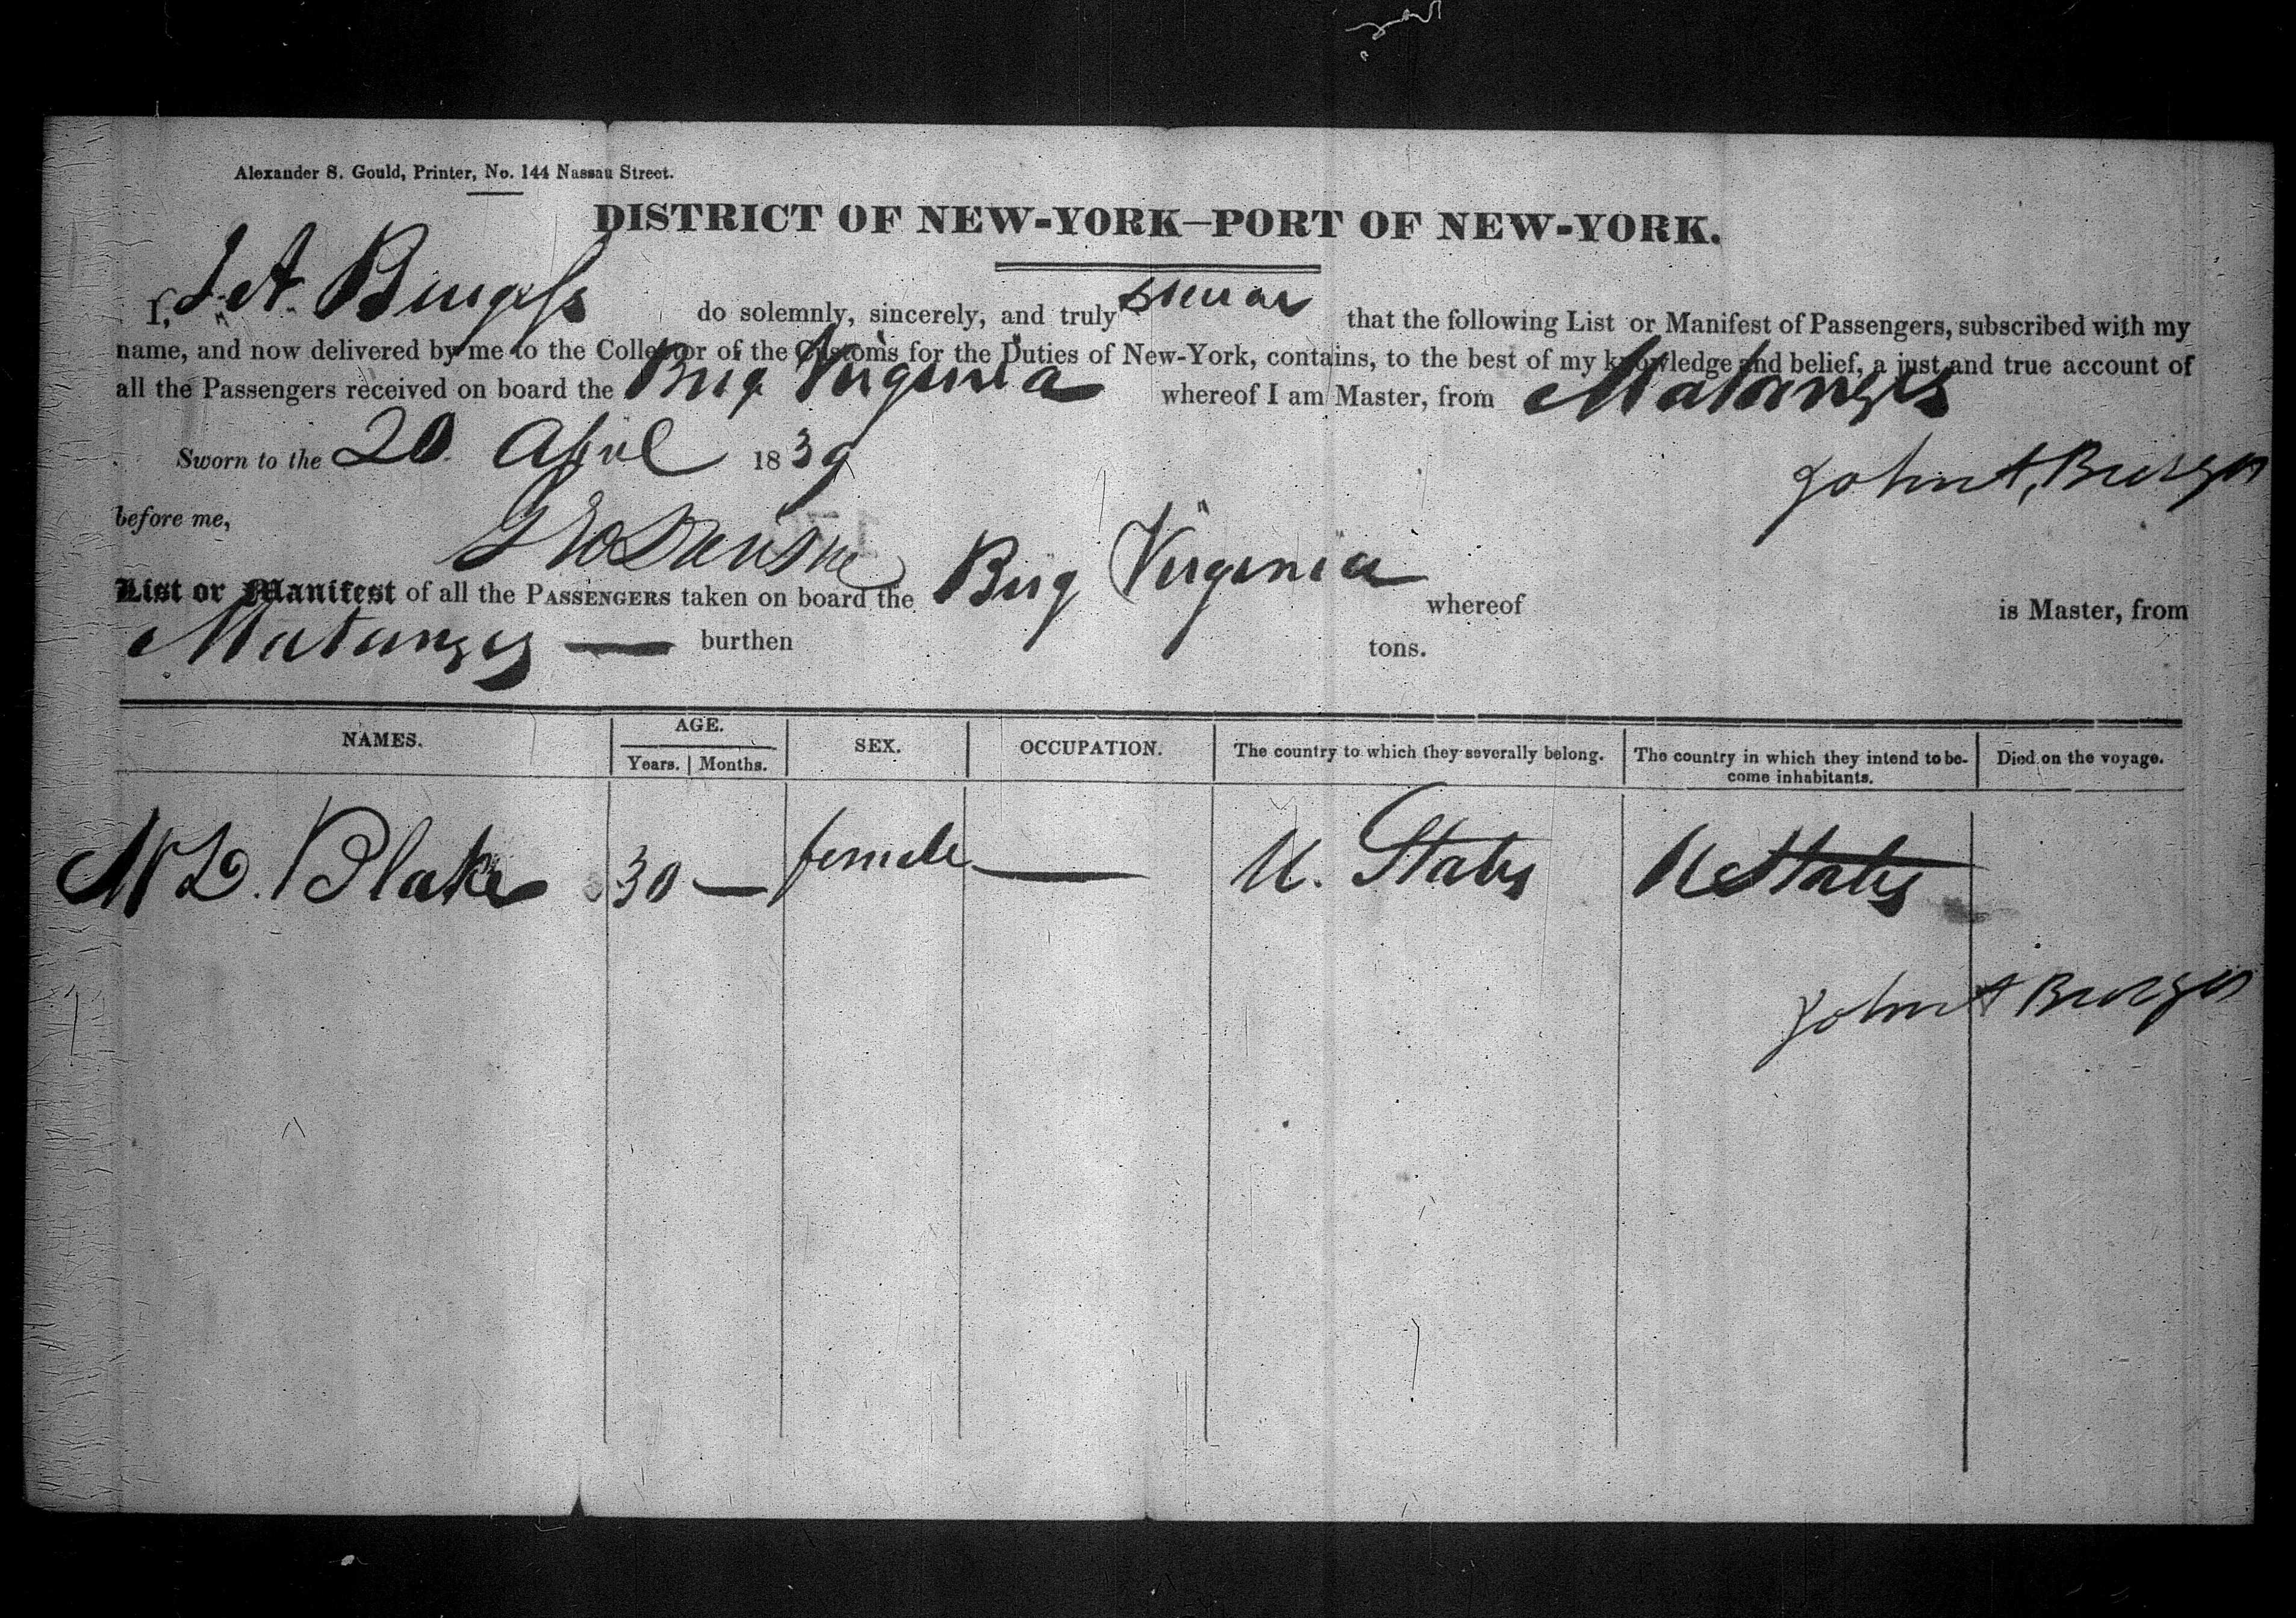 Alexander S. Gould, Printer, No. 144 Nassau Street.
DISTRICT OF NEW-YORK—PORT OF NEW-YORK.
I, J. A. Burgess do solemnly, sincerely, and truly swear that the following List or Manifest of Passengers, subscribed with my
name, and now delivered by me to the Collector of the Customs for the Duties of New-York, contains, to the best of my knowledge and belief, a just and true account of
all the Passengers received on board the Brig Virginia whereof I am Master, from Matanzas
Sworn to the 20 April 1839
John A. Burges
before me,
List or Manifest of all the PASSENGERS taken on board the Brig Virginia whereof is Master, from
Matanzas — burthen tons.
NAMES. AGE. SEX. OCCUPATION. The country to which they severally belong. The country in which they intend to be- Died on the voyage.
Years. Months. come inhabitants.
Blake 30 — female — U. States U States
John A Burges